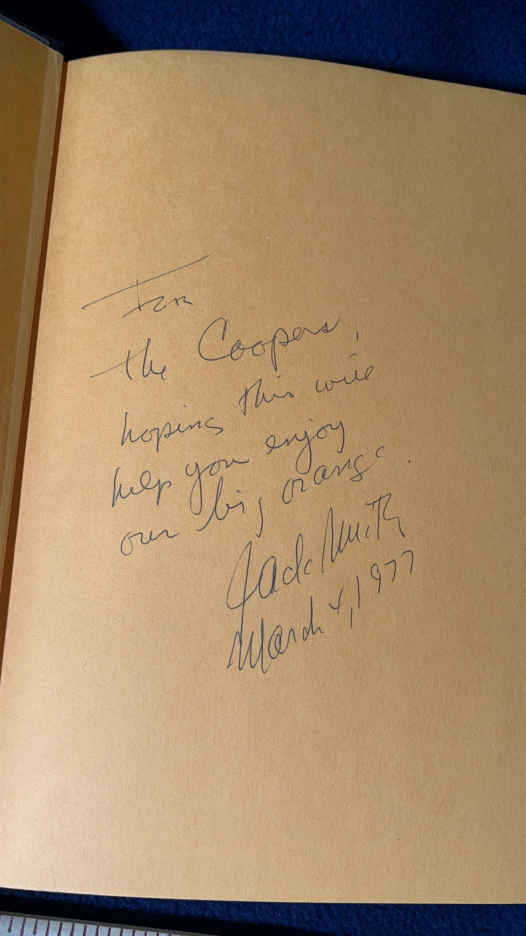 For
the Coopers,
hoping this will
help you enjoy
our big orange.
Jack Smith
March 4, 1977